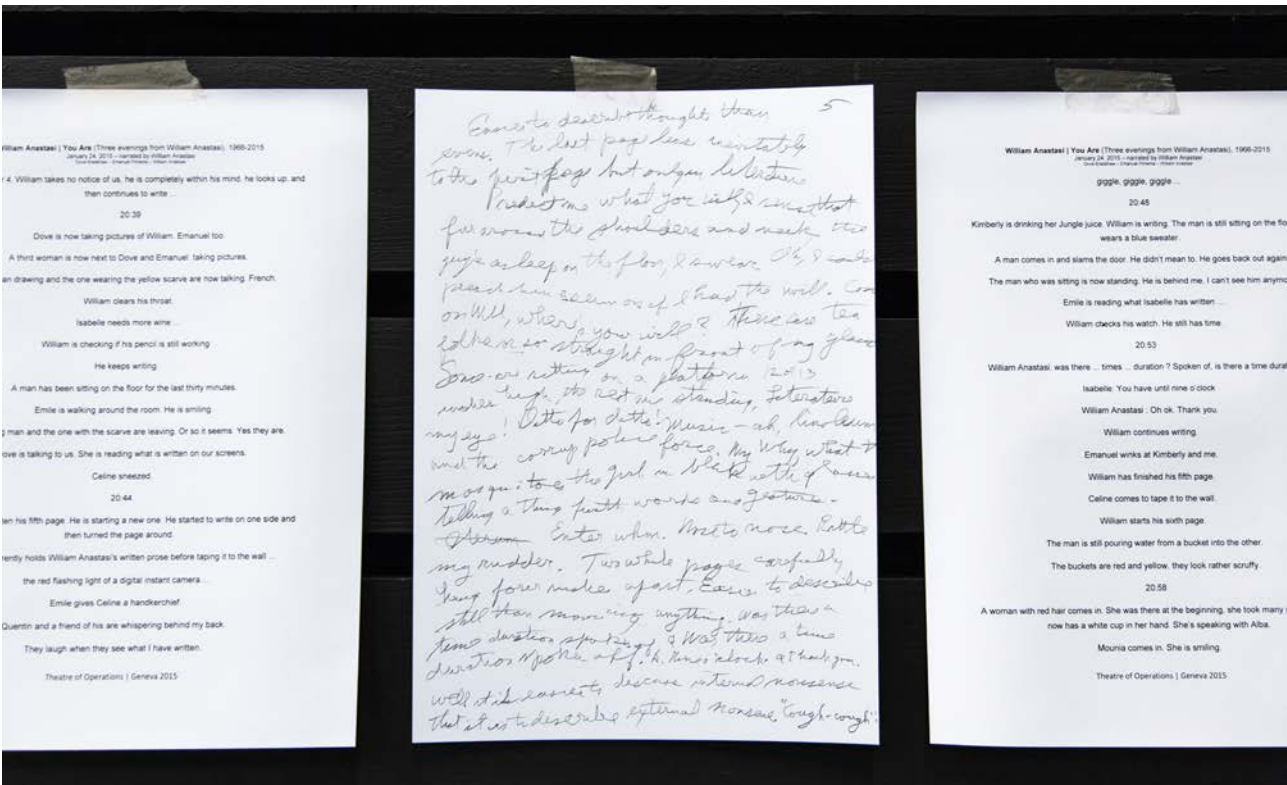 William Anastasi | You Are (Three evenings from William Anastasi), 1966-2015
January 24, 2015 – narrated by William Anastasi
4. William takes no notice of us, he is completely within his mind, he looks up, and
then continues to write ...
20:39
Dove is now taking pictures of William. Emanuel too.
A third woman is now next to Dove and Emanuel taking pictures.
an drawing and the one wearing the yellow scarve are now talking. French.
William clears his throat.
Isabelle needs more wine ...
William is checking if his pencil is still working
He keeps writing
A man has been sitting on the floor for the last thirty minutes.
Emile is walking around the room. He is smiling.
man and the one with the scarve are leaving. Or so it seems. Yes they are.
ove is talking to us. She is reading what is written on our screens.
Celine sneezed.
20:44
en his fifth page. He is starting a new one. He started to write on one side and
then turned the page around.
rently holds William Anastasi's written prose before taping it to the wall ...
the red flashing light of a digital instant camera ...
Emile gives Celine a handkerchief.
Quentin and a friend of his are whispering behind my back.
They laugh when they see what I have written.
Theatre of Operations | Geneva 2015
5
Easier to describe thoughts than
events. The last page lines
to the first page but only in
me what you that
around the shoulders and neck, the
guy's asleep on the floor, I swear Oh, I could
him if I had the will. Com
on Will, where's your will? There are ten
so straight in front of my glass
Some are sitting on a platform 12 or 13
inches high, the rest are standing, Literature
my eye! Ditto for ditto! Music – ah,
and the police force. My Why what
mosquitoes the girl in black with glasses
telling a thing with words and gesture.
Enter whm. Nose to nose. Rattle
my rudder. Two white pages carefully
hung four inches apart. Easier to describe
still than moving anything. Was there a
time duration Was there a time
duration spoken of. A. Nine o'clock. A Thank you.
Well it is easier to internal nonsense
that it is to describe external nonsense. "Cough-cough"
William Anastasi | You Are (Three evenings from William Anastasi), 1966-2015
January 24, 2015 – narrated by William Anastasi
giggle, giggle, giggle ...
20:48
Kimberly is drinking her Jungle juice. William is writing. The man is still sitting on the flo
wears a blue sweater.
A man comes in and slams the door. He didn't mean to. He goes back out again
The man who was sitting is now standing. He is behind me. I can't see him anymo
Emile is reading what Isabelle has written ...
William checks his watch. He still has time.
20:53
William Anastasi: was there ... times ... duration ? Spoken of, is there a time durat
Isabelle: You have until nine o'clock
William Anastasi : Oh ok. Thank you.
William continues writing.
Emanuel winks at Kimberly and me.
William has finished his fifth page.
Celine comes to tape it to the wall.
William starts his sixth page.
The man is still pouring water from a bucket into the other.
The buckets are red and yellow, they look rather scruffy.
20:58
A woman with red hair comes in. She was there at the beginning, she took many
now has a white cup in her hand. She's speaking with Alba.
Mounia comes in. She is smiling.
Theatre of Operations | Geneva 2015